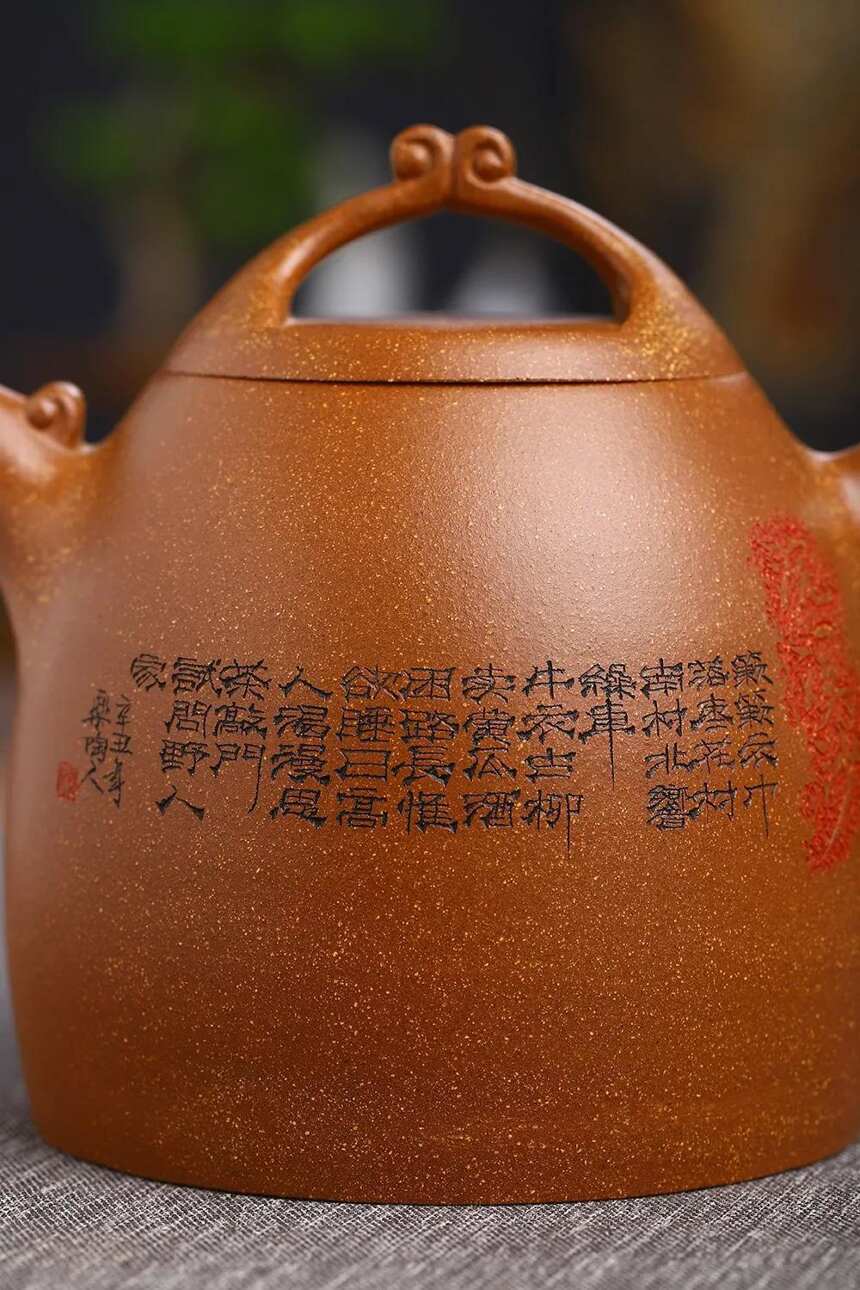 簌簌衣巾
落枣花村
南村北響
繰車
牛衣古柳
卖黄瓜酒
困路長惟
欲睡日高
人渴漫思
茶敲門
試問野人
家
辛丑年
陶人